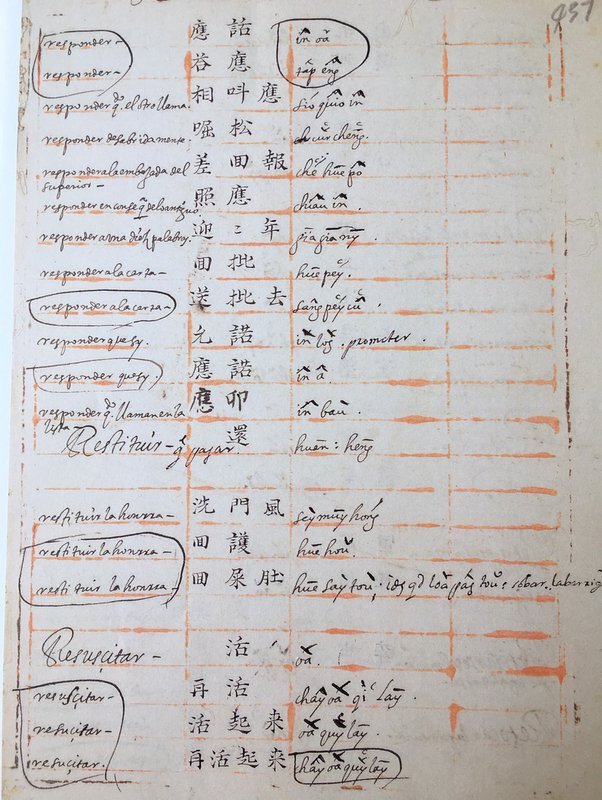 937
responder – 應 話 in oa
responder – 答 應 tap eng
responder q.º el otro llama. 相 呌 應 sio quio in
responder desabridamente. 啒 松
responder a la embajada del 差 回 報 che hue po
superior –
responder en conseq.ª del antiguo 照 應 chiau in
responder a una diez palabras. 迎 〻 年 gia gia ny.
responder a la carta – 回 批 hue pey.
responder a la carta – 送 批 去 sang pey cu.
responder que sy. 允 諾 in log. prometer.
responder que sy 應 諾 in a.
responder q.º llaman en la 應 卯 in bau.
lista
Restituir – q.ª pagar 還 huen : heng
restituir la honrra – 洗 門 風 sey muy hong
restituir la honrra – 回 護 hue hou.
restituir la honrra – 回 屎 肚 hue say tou
Resuscitar – 活 oa.
resuscitar – 再 活 chay oa qi lay.
resucitar – 活 起 来 oa quy lay.
resucitar. 再 活 起 来 chay oa quy lay